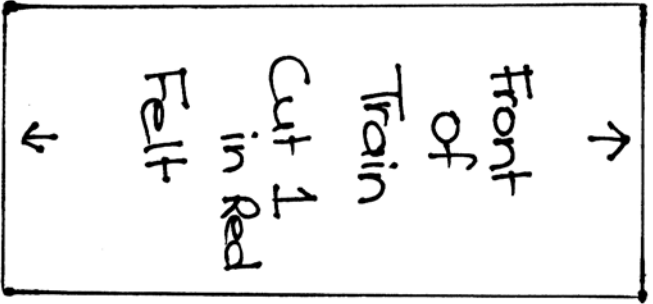 Front
of
Train
Cut 1
in Red
Felt